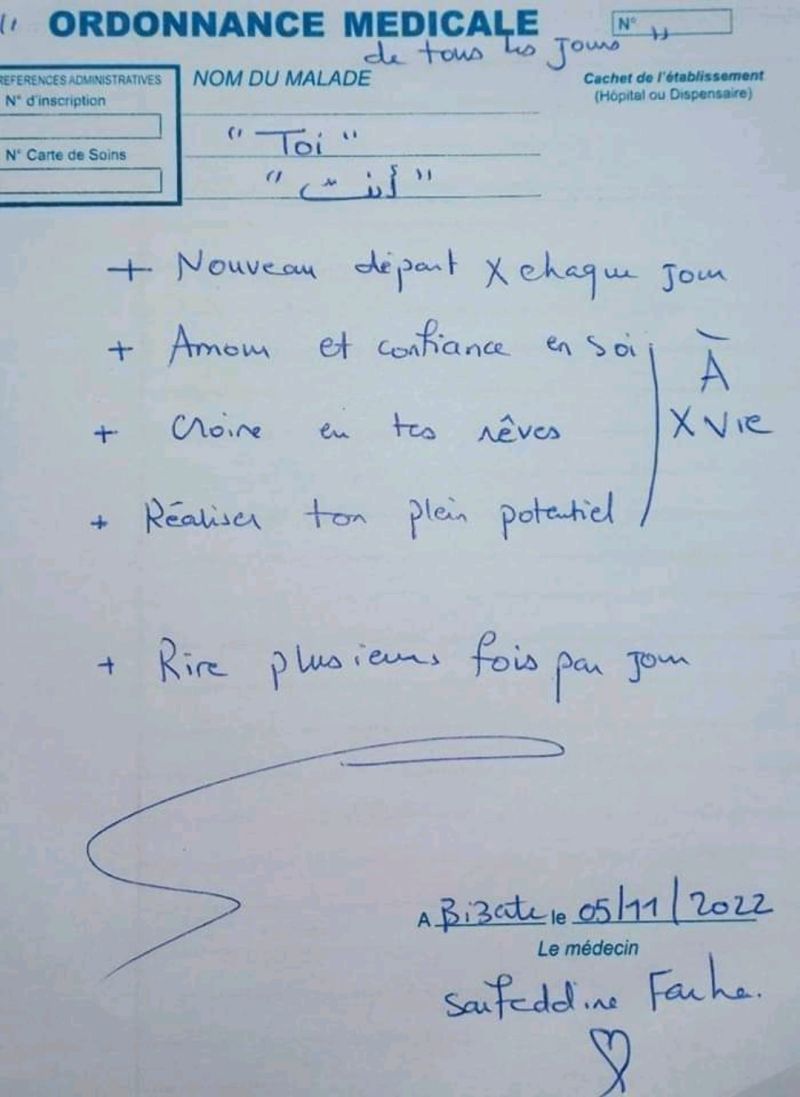 " ORDONNANCE MEDICALE
N°
de tous les jours "
REFERENCES ADMINISTRATIVES
N° d'inscription
N° Carte de Soins
NOM DU MALADE
Cachet de l'établissement
(Hôpital ou Dispensaire)
" Toi "
" أنت "
+ Nouveau départ X chaque jour
+ Amour et confiance en soi
+ Croire en tes rêves
+ Réaliser ton plein potentiel
À
X Vie
+ Rire plusieurs fois par jour
A Bizerte le 05/11/2022
Le médecin
Saifeddine Farha.